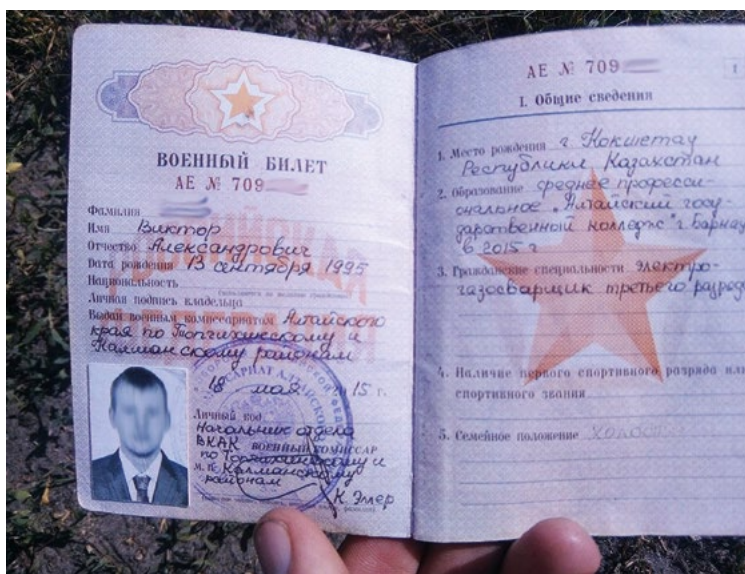 ВОЕННЫЙ БИЛЕТ
АЕ № 709
Фамилия
Имя Виктор
Отчество Александрович
Дата рождения 13 сентября 1995
Национальность
Личная подпись владельца
Выдан военным комиссариатом Алтайского
края по Топчихинскому и
Калманскому районам
18 мая 15 г.
Личный код
Начальник отдела
ВКАК ВОЕННЫЙ КОМИССАР
по Топчихинскому и
М. П. Калманскому
районам
К. Эллер
АЕ № 709
1
I. Общие сведения
1. Место рождения г. Кокшетау
Республики Казахстан
2. Образование среднее професси-
ональное "Алтайский госу-
дарственный колледж" г. Барнау
в 2015 г
3. Гражданские специальности электро-
газосварщик третьего разряд
4. Наличие первого спортивного разряда или
спортивного звания
5. Семейное положение холост